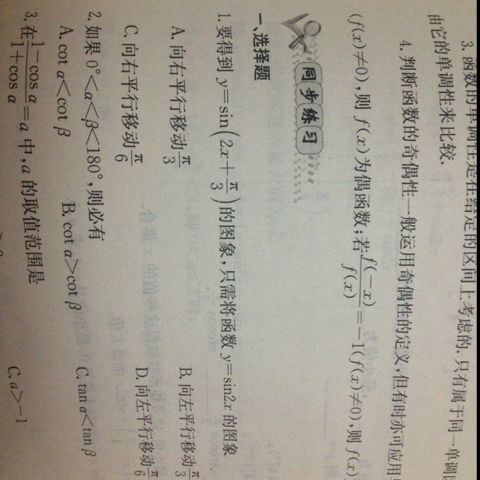 3. 函数的单调性是在给定的区间上考虑的. 只有属于同一单调
由它的单调性来比较.
4. 判断函数的奇偶性一般运用奇偶性的定义,但有时亦可应用
(f(x)≠0),则 f(x)为偶函数;若f(−x)/f(x)=−1(f(x)≠0),则 f(x)
同步练习
一、选择题
1. 要得到 y=sin(2x+π/3)的图象,只需将函数 y=sin2x 的图象
A. 向右平行移动π/3 B. 向左平行移动π/3
C. 向右平行移动π/6 D. 向左平行移动π/6
2. 如果 0°<α<β<180°,则必有
A. cot α<cot β B. cot α>cot β C. tan α<tan β
3. 在(1−cos α)/(1+cos α)=a 中,a 的取值范围是
C. a>−1